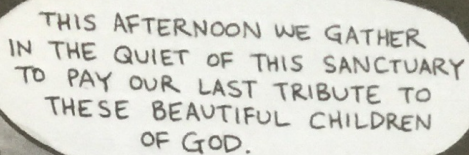 THIS AFTERNOON WE GATHER
IN THE QUIET OF THIS SANCTUARY
TO PAY OUR LAST TRIBUTE TO
THESE BEAUTIFUL CHILDREN
OF GOD.